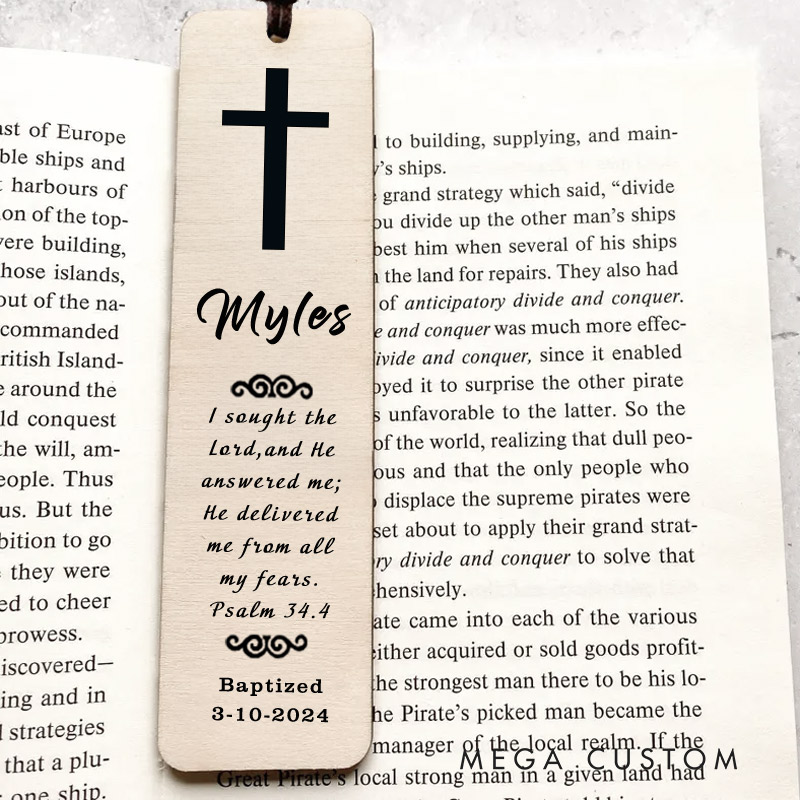 ast of Europe
ble ships and
harbours of
on of the top-
vere building,
hose islands,
out of the na-
commanded
ritish Island-
e around the
ld conquest
the will, am-
eople. Thus
us. But the
bition to go
they were
ed to cheer
prowess.
iscovered—
ing and in
l strategies
that a plu-
one ship.
Myles
I sought the
Lord,and He
answered me;
He delivered
me from all
my fears.
Psalm 34.4
Baptized
3-10-2024
l to building, supplying, and main-
y's ships.
grand strategy which said, “divide
ou divide up the other man's ships
best him when several of his ships
n the land for repairs. They also had
of anticipatory divide and conquer.
e and conquer was much more effec-
ivide and conquer, since it enabled
oyed it to surprise the other pirate
s unfavorable to the latter. So the
of the world, realizing that dull peo-
ous and that the only people who
displace the supreme pirates were
set about to apply their grand strat-
ry divide and conquer to solve that
hensively.
ate came into each of the various
either acquired or sold goods profit-
the strongest man there to be his lo-
he Pirate's picked man became the
manager of the local realm. If the
Great Pirate's local strong man in a given land had
MEGA CUSTOM